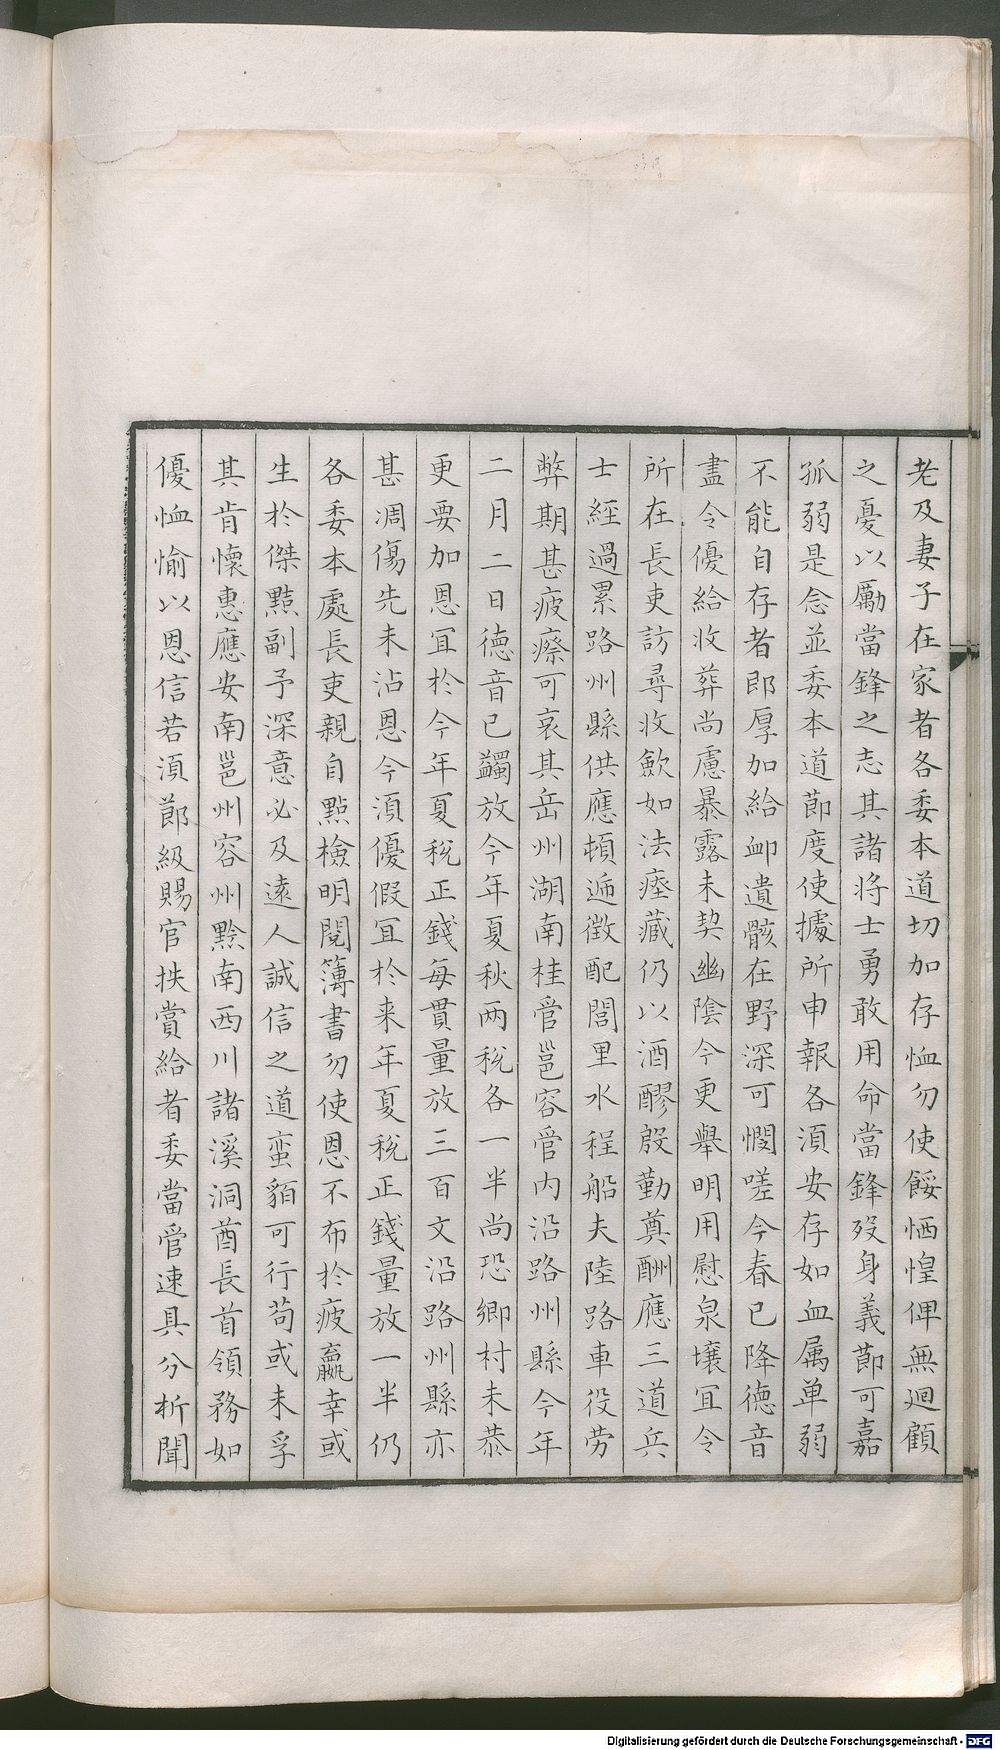 老及妻子在家者各委本道切加存恤勿使餒恓惶俾無廻顧
之憂以勵當鋒之志其諸將士勇敢用命當鋒歿身義莭可嘉
孤弱是念並委本道莭度使據所申報各湏安存如血属单弱
不能自存者即厚加給卹遺骸在野深可憫嗟今春已降德音
盡令優給收葬尚慮暴露未契幽陰今更舉明用慰泉壤冝令
所在長吏訪尋收歛如法瘞藏仍以酒醪殷勤奠酬應三道兵
士經過累路州縣供應頓逓徴配閭里水程船夫陸路車役劳
弊期甚疲瘵可哀其岳州湖南桂管邕容管内沿路州縣今年
二月二日德音已蠲放今年夏秋两稅各一半尚恐鄉村未恭
更要加恩冝於今年夏稅正錢每貫量放三百文沿路州縣亦
甚凋傷先未沾恩今湏優假冝於来年夏稅正錢量放一半仍
各委本處長吏親自點檢明閱簿書勿使恩不布於疲羸幸或
生於傑黠副予深意必及遠人誠信之道蛮貊可行苟或未孚
其肯懷惠應安南邕州容州黔南西川諸溪洞酋長首領務如
優恤愉以恩信若湏莭級賜官抶賞給者委當管速具分析聞
Digitalisierung gefördert durch die Deutsche Forschungsgemeinschaft - DFG